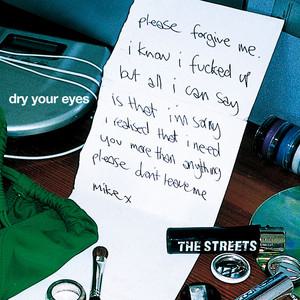 please forgive me.
i know i fucked up
but all i can say
is that i'm sorry
i realised that i need
you more than anything
please dont leave me
mike x
dry your eyes
THE STREETS